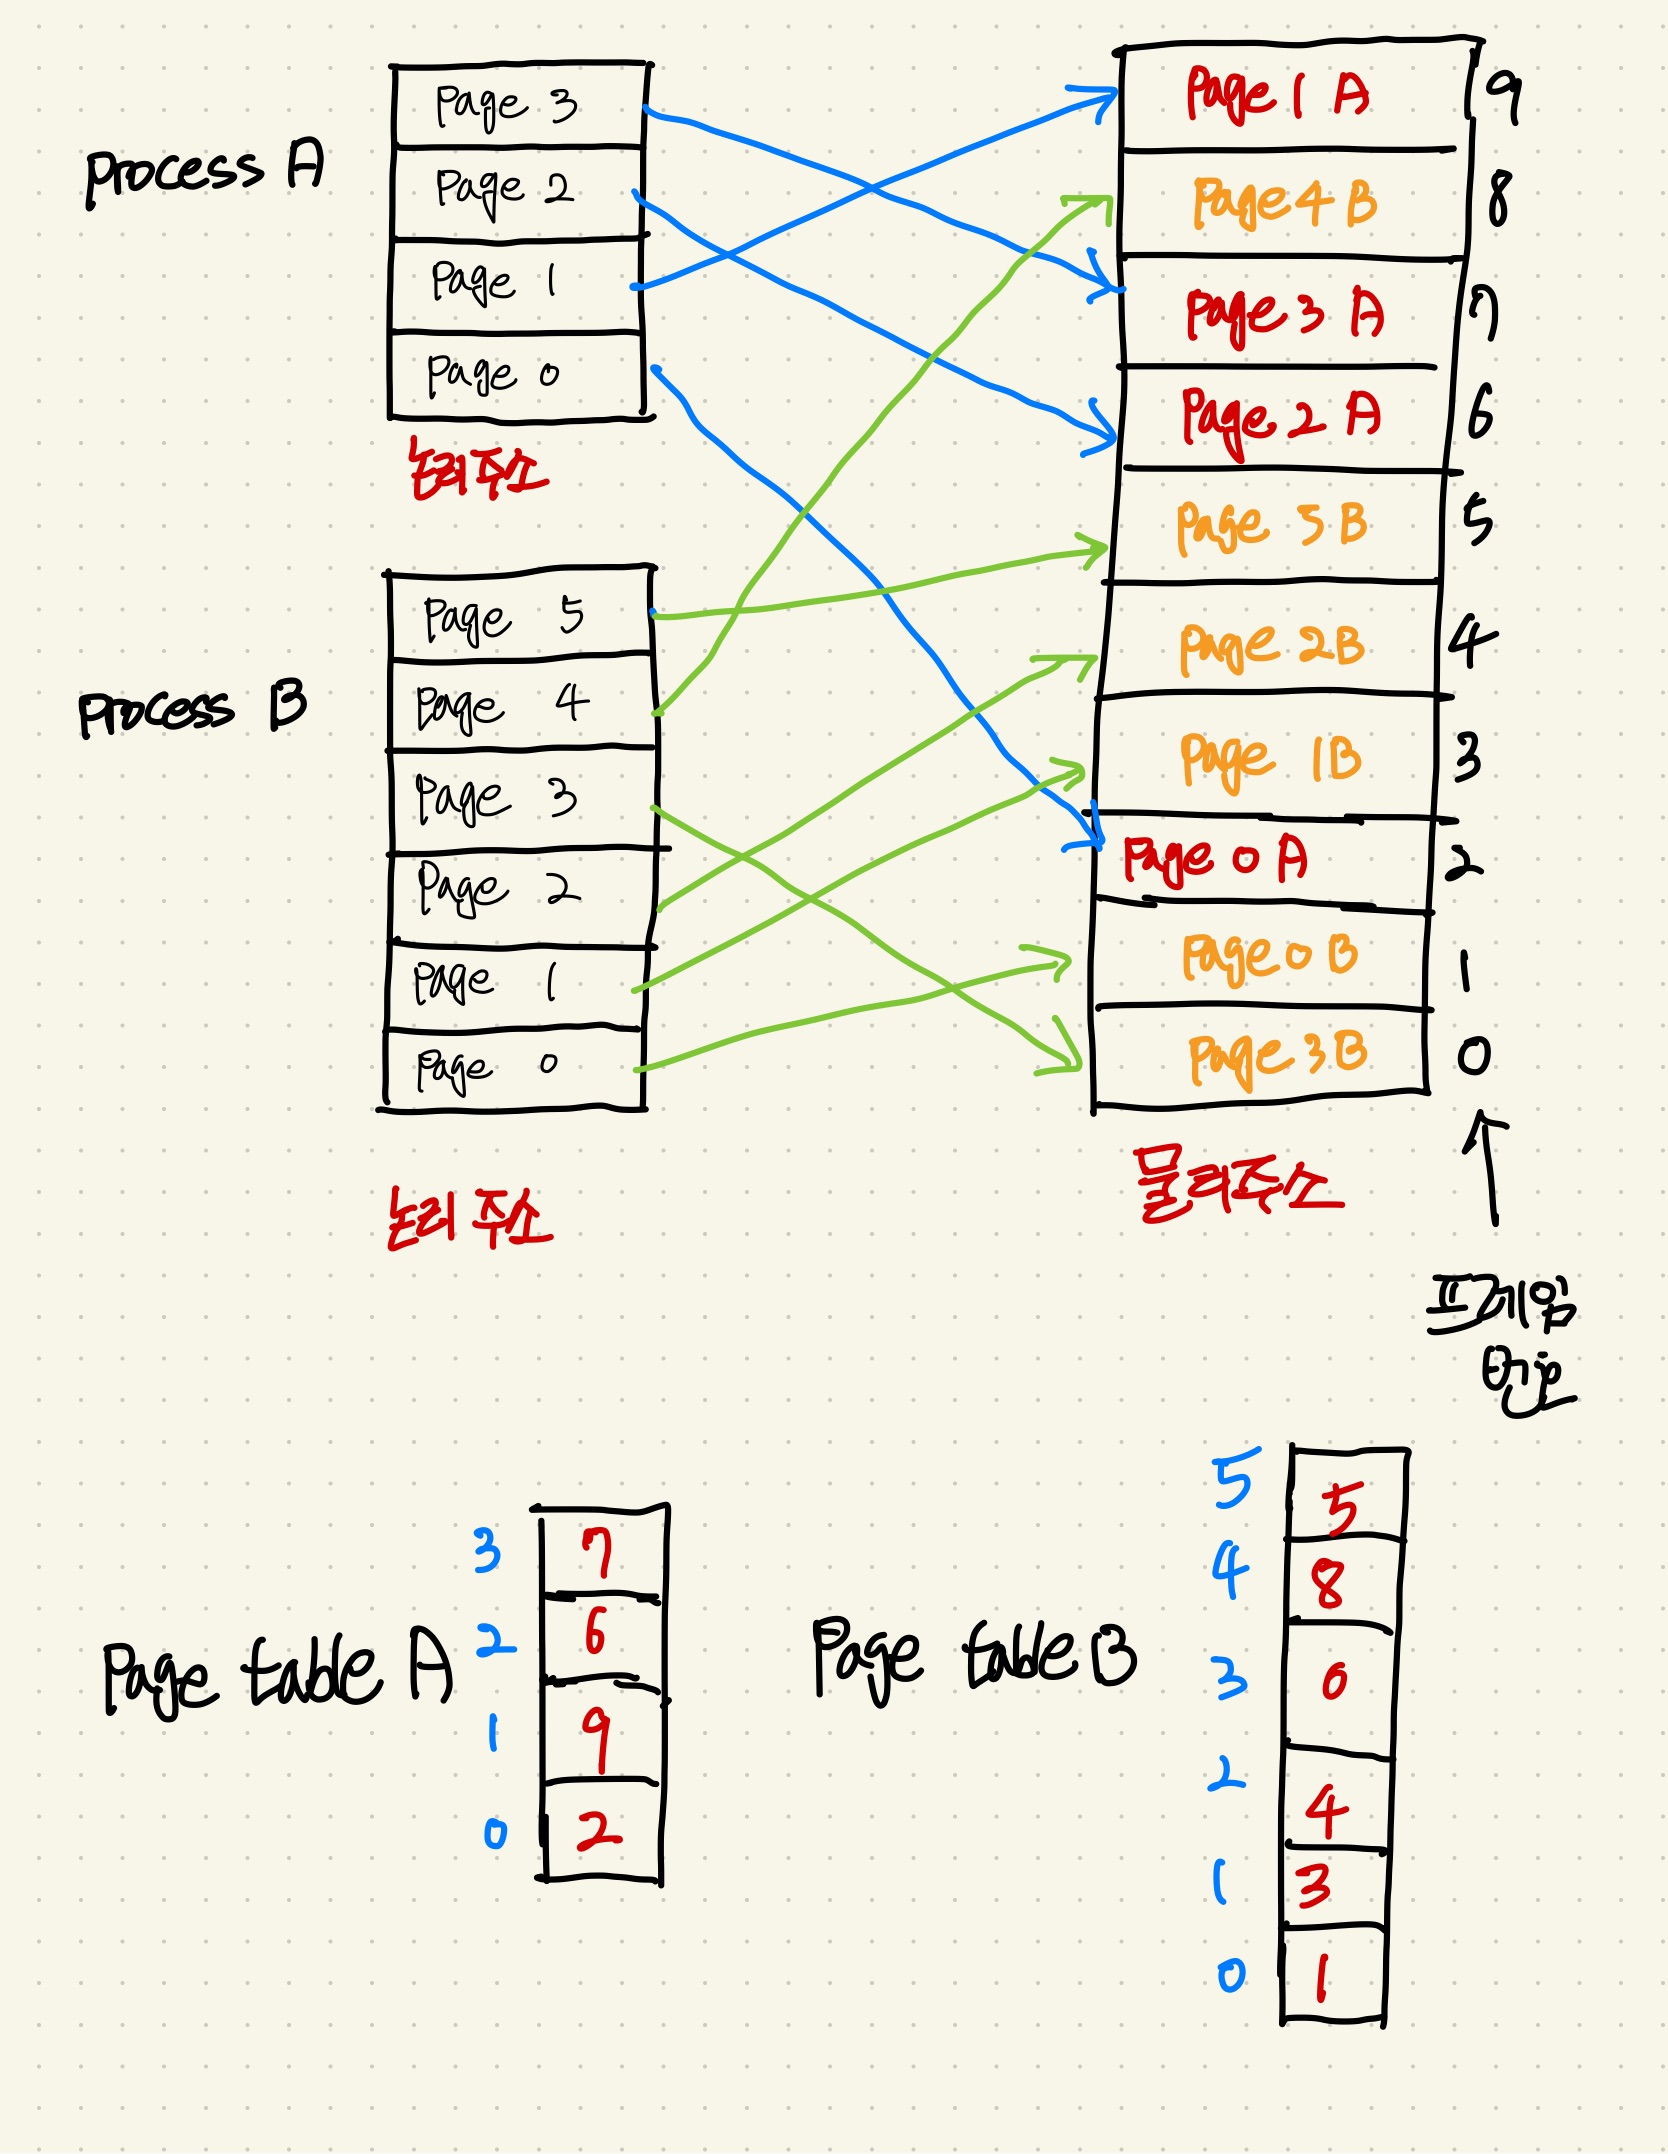 Process A
Page 3
Page 2
Page 1
Page 0
논리주소
Process B
Page 5
Page 4
Page 3
Page 2
Page 1
Page 0
논리 주소
Page 1 A 9
Page 4 B 8
Page 3 A 7
Page 2 A 6
Page 5 B 5
Page 2B 4
Page 1B 3
Page 0 A 2
Page 0 B 1
Page 3B 0
물리주소
프레임
번호
Page table A
3 7
2 6
1 9
0 2
Page table B
5 5
4 8
3 0
2 4
1 3
0 1